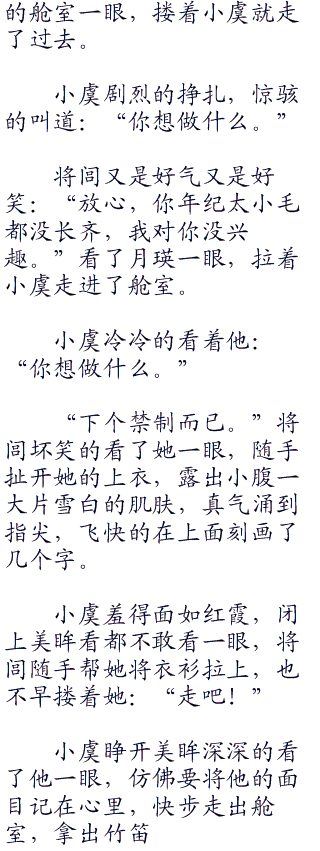 的舱室一眼，搂着小虞就走
了过去。
小虞剧烈的挣扎，惊骇
的叫道：“你想做什么。”
将闾又是好气又是好
笑：“放心，你年纪太小毛
都没长齐，我对你没兴
趣。”看了月瑛一眼，拉着
小虞走进了舱室。
小虞冷冷的看着他：
“你想做什么。”
“下个禁制而已。”将
闾坏笑的看了她一眼，随手
扯开她的上衣，露出小腹一
大片雪白的肌肤，真气涌到
指尖，飞快的在上面刻画了
几个字。
小虞羞得面如红霞，闭
上美眸看都不敢看一眼，将
闾随手帮她将衣衫拉上，也
不早搂着她：“走吧！”
小虞睁开美眸深深的看
了他一眼，仿佛要将他的面
目记在心里，快步走出舱
室，拿出竹笛